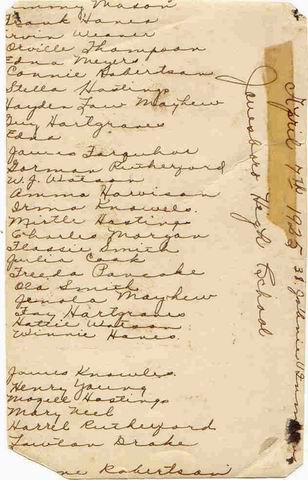 Jimmy Mason
Frank Hanes
Irvin Weaver
Orville Thompson
Edna Meyers
Connie Robertson
Stella Hastings
Hayden Law Mayhew
Guy Hartgraves
Edna
James Farquhar
Gorman Rutherford
W.J. Watson
Amma Harvison
Irma Knowels.
Mirtle Hastings
Charles Morgan
Flassie Smith
Julia Cook
Freeda Pancake
Ola Smith
Jenola Mayhew
Fay Hartgraves
Hattie Watson
Winnie Hanes.
James Knowles
Henry Young
Mozell Hastings
Mary Neel
Harrel Rutherford
Lawton Drake
Robertson
Jonesboro High School
April 1925